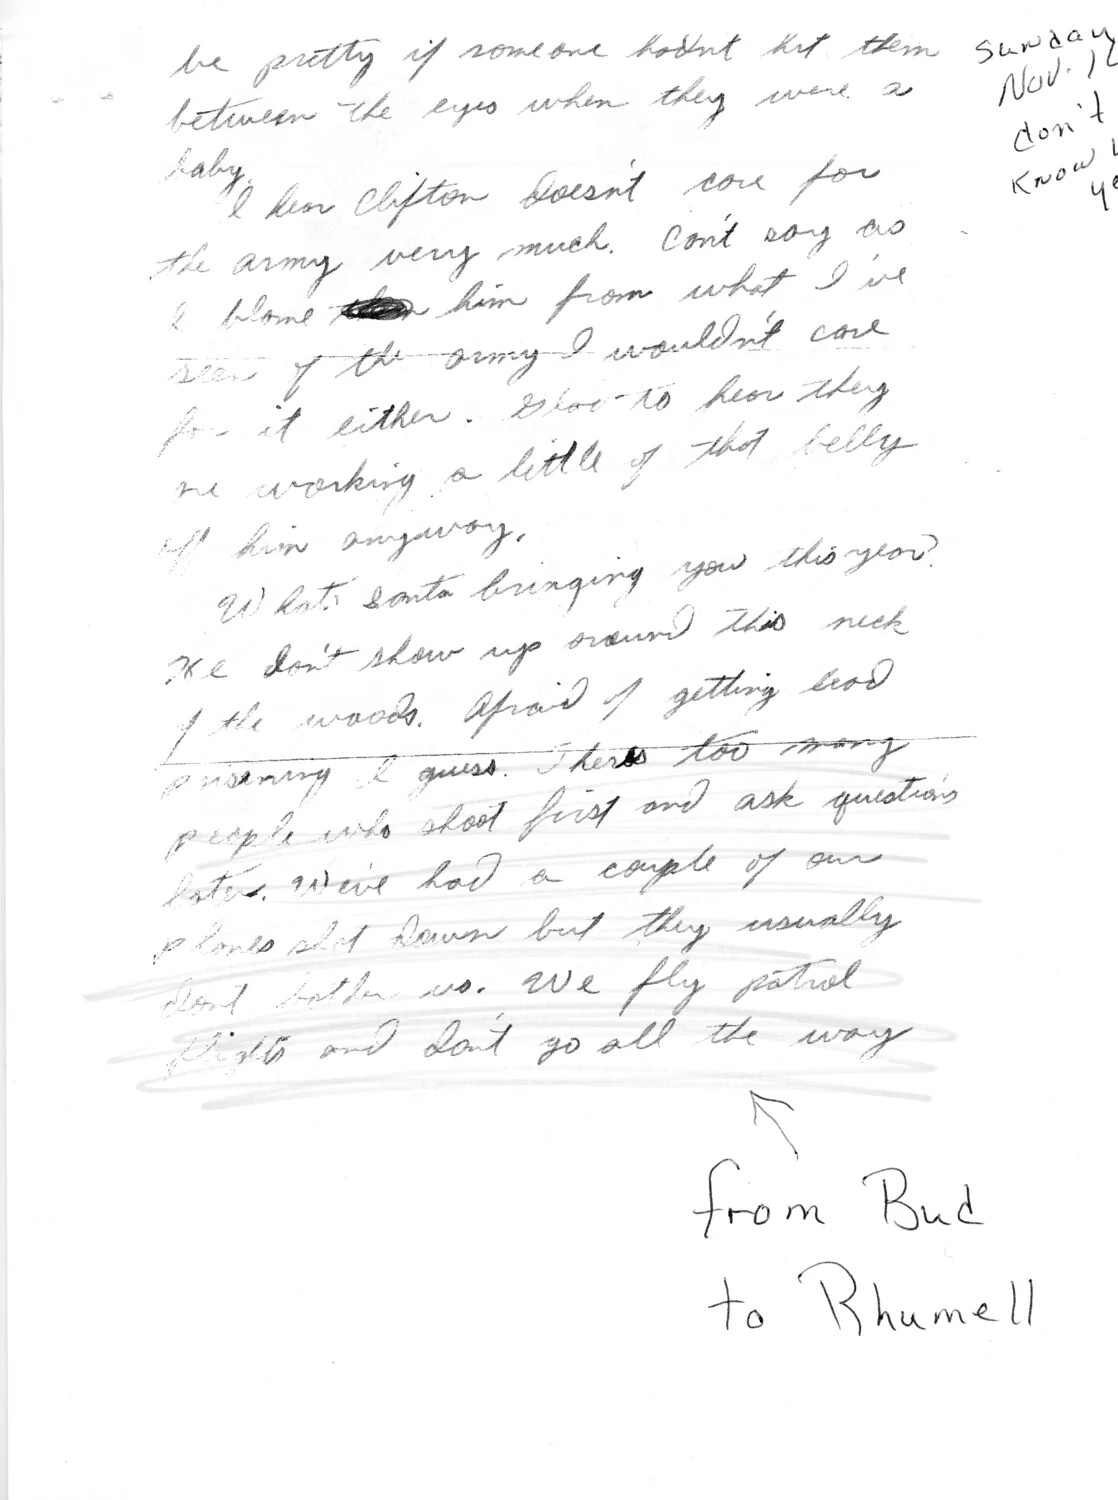 be pretty if someone hadn't hit them
between the eyes when they were a
baby.
I hear Clifton doesn't care for
the army very much. Can't say as
I blame him from what I've
seen of the army I wouldn't care
for it either. Glad to hear they
are working a little of that belly
off him anyway.
What's Santa bringing you this year?
He don't show up around this neck
of the woods. Afraid of getting lead
poisening I guess. Theres too many
people who shoot first and ask questions
later. We've had a couple of our
planes shot down but they usually
dont bother us. We fly patrol
flights and don't go all the way
Sunday
Nov. 1
don't
Know
from Bud
to Rhumell